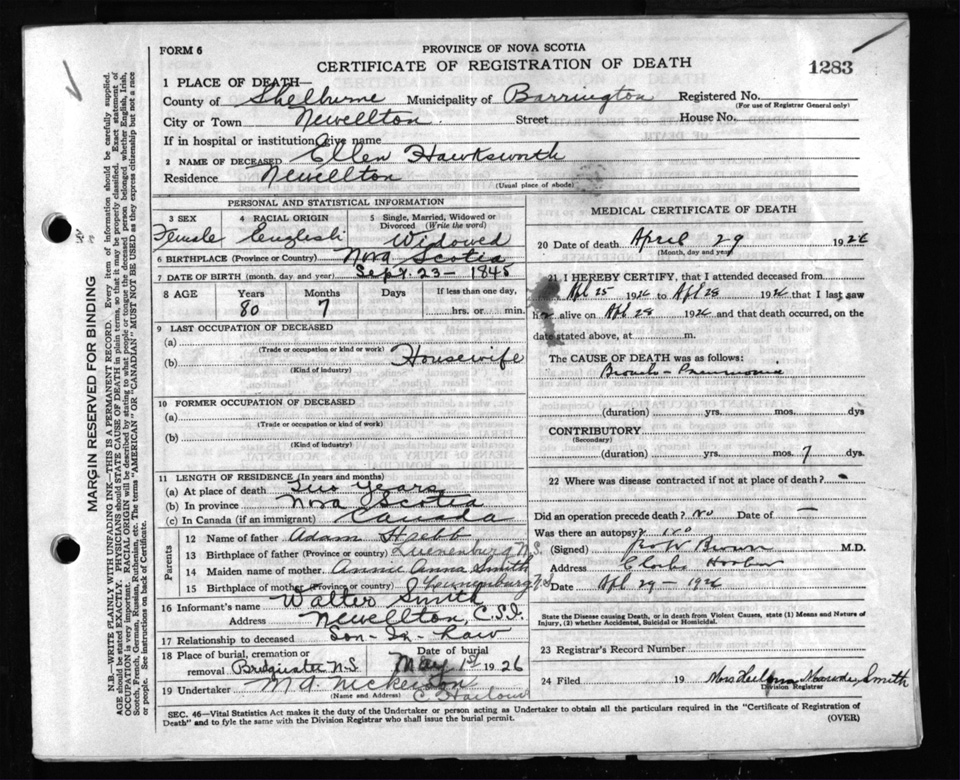 FORM 6
PROVINCE OF NOVA SCOTIA
CERTIFICATE OF REGISTRATION OF DEATH
1283
1 PLACE OF DEATH—
County of Shelburne Municipality of Barrington Registered No.
(For use of Registrar General only)
City or Town Newellton Street House No.
If in hospital or institution, give name
2 NAME OF DECEASED Ellen Hawksworth
Residence Newellton
(Usual place of abode)
PERSONAL AND STATISTICAL INFORMATION
3 SEX 4 RACIAL ORIGIN 5 Single, Married, Widowed or Divorced (Write the word)
Female English Widowed
6 BIRTHPLACE (Province or Country) Nova Scotia
7 DATE OF BIRTH (month, day, and year) Sept. 23 - 1845
8 AGE Years Months Days If less than one day,
80 7 hrs. or min.
9 LAST OCCUPATION OF DECEASED
(a)
(Trade or occupation or kind or work)
(b) Housewife
(Kind of industry)
10 FORMER OCCUPATION OF DECEASED
(a)
(Trade or occupation or kind or work)
(b)
(Kind of industry)
11 LENGTH OF RESIDENCE (In years and months)
(a) At place of death Two years
(b) In province Nova Scotia
(c) In Canada (if an immigrant) Canada
Parents
12 Name of father Adam Hebb
13 Birthplace of father (Province or country) Lunenburg N.S.
14 Maiden name of mother Annie Anna Smith
15 Birthplace of mother (Province or country) Lunenburg N.S
16 Informant's name Walter Smith
Address Newellton, C.S.I.
17 Relationship to deceased Son-In-Law
18 Place of burial, cremation or removal Bridgwater N.S. Date of burial May 1st 1926
19 Undertaker M A Nickerson
(Name and Address) C. Harbour
MEDICAL CERTIFICATE OF DEATH
20 Date of death April 29 1926
(Month, day and year)
21 I HEREBY CERTIFY, that I attended deceased from
Apl 25 1926 to Apl 28 1926 that I last saw
her alive on Apl 28 1926 and that death occurred, on the
date stated above, at m.
The CAUSE OF DEATH was as follows:
Broncho-Pneumonia
(duration) yrs. mos. dys
CONTRIBUTORY
(Secondary)
(duration) yrs. mos. 7 dys
22 Where was disease contracted if not at place of death?
Did an operation precede death? No Date of —
Was there an autopsy? No
(Signed) Brown M.D.
Address Clarks Harbour
Date Apl 29 - 1926
State the Disease causing Death, or in death from Violent Causes, state (1) Means and Nature of
Injury, (2) whether Accidental, Suicidal or Homicidal.
23 Registrar's Record Number
24 Filed 19 Smith
Division Registrar
SEC. 46—Vital Statistics Act makes it the duty of the Undertaker or person acting as Undertaker to obtain all the particulars required in the "Certificate of Registration of
Death" and to fyle the same with the Division Registrar who shall issue the burial permit.
(OVER)
MARGIN RESERVED FOR BINDING
N.B.—WRITE PLAINLY WITH UNFADING INK—THIS IS A PERMANENT RECORD. Every item of information should be carefully supplied.
AGE should be stated EXACTLY. PHYSICIANS should STATE CAUSE OF DEATH in plain terms, so that it may be properly classified. Exact statement of
OCCUPATION is very important. RACIAL ORIGIN will be described by stating to what people or tongue the deceased person belonged whether English, Irish,
Scotch, French, German, Russian, Ruthenian, etc. The terms "AMERICAN" OR "CANADIAN" MUST NOT BE USED as they express citizenship but not a race
or people. See instructions on back of Certificate.